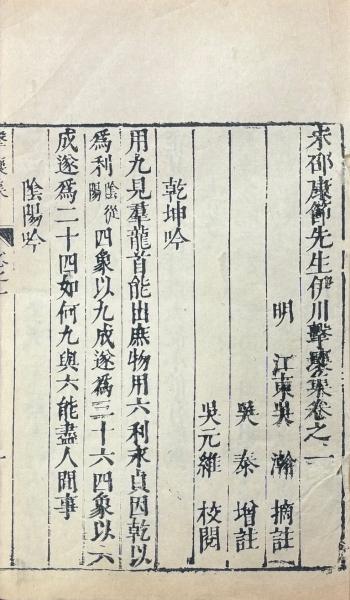 宋邵康節先生伊川擊壤集卷之一
明 江東吳瀚 摘註
吳泰 增註
吳元維 校閱
乾坤吟
用九見羣龍首能出庶物用六利永貞因乾以
為利陰從陽四象以九成遂為三十六四象以六
成遂為二十四如何九與六能盡人間事
陰陽吟